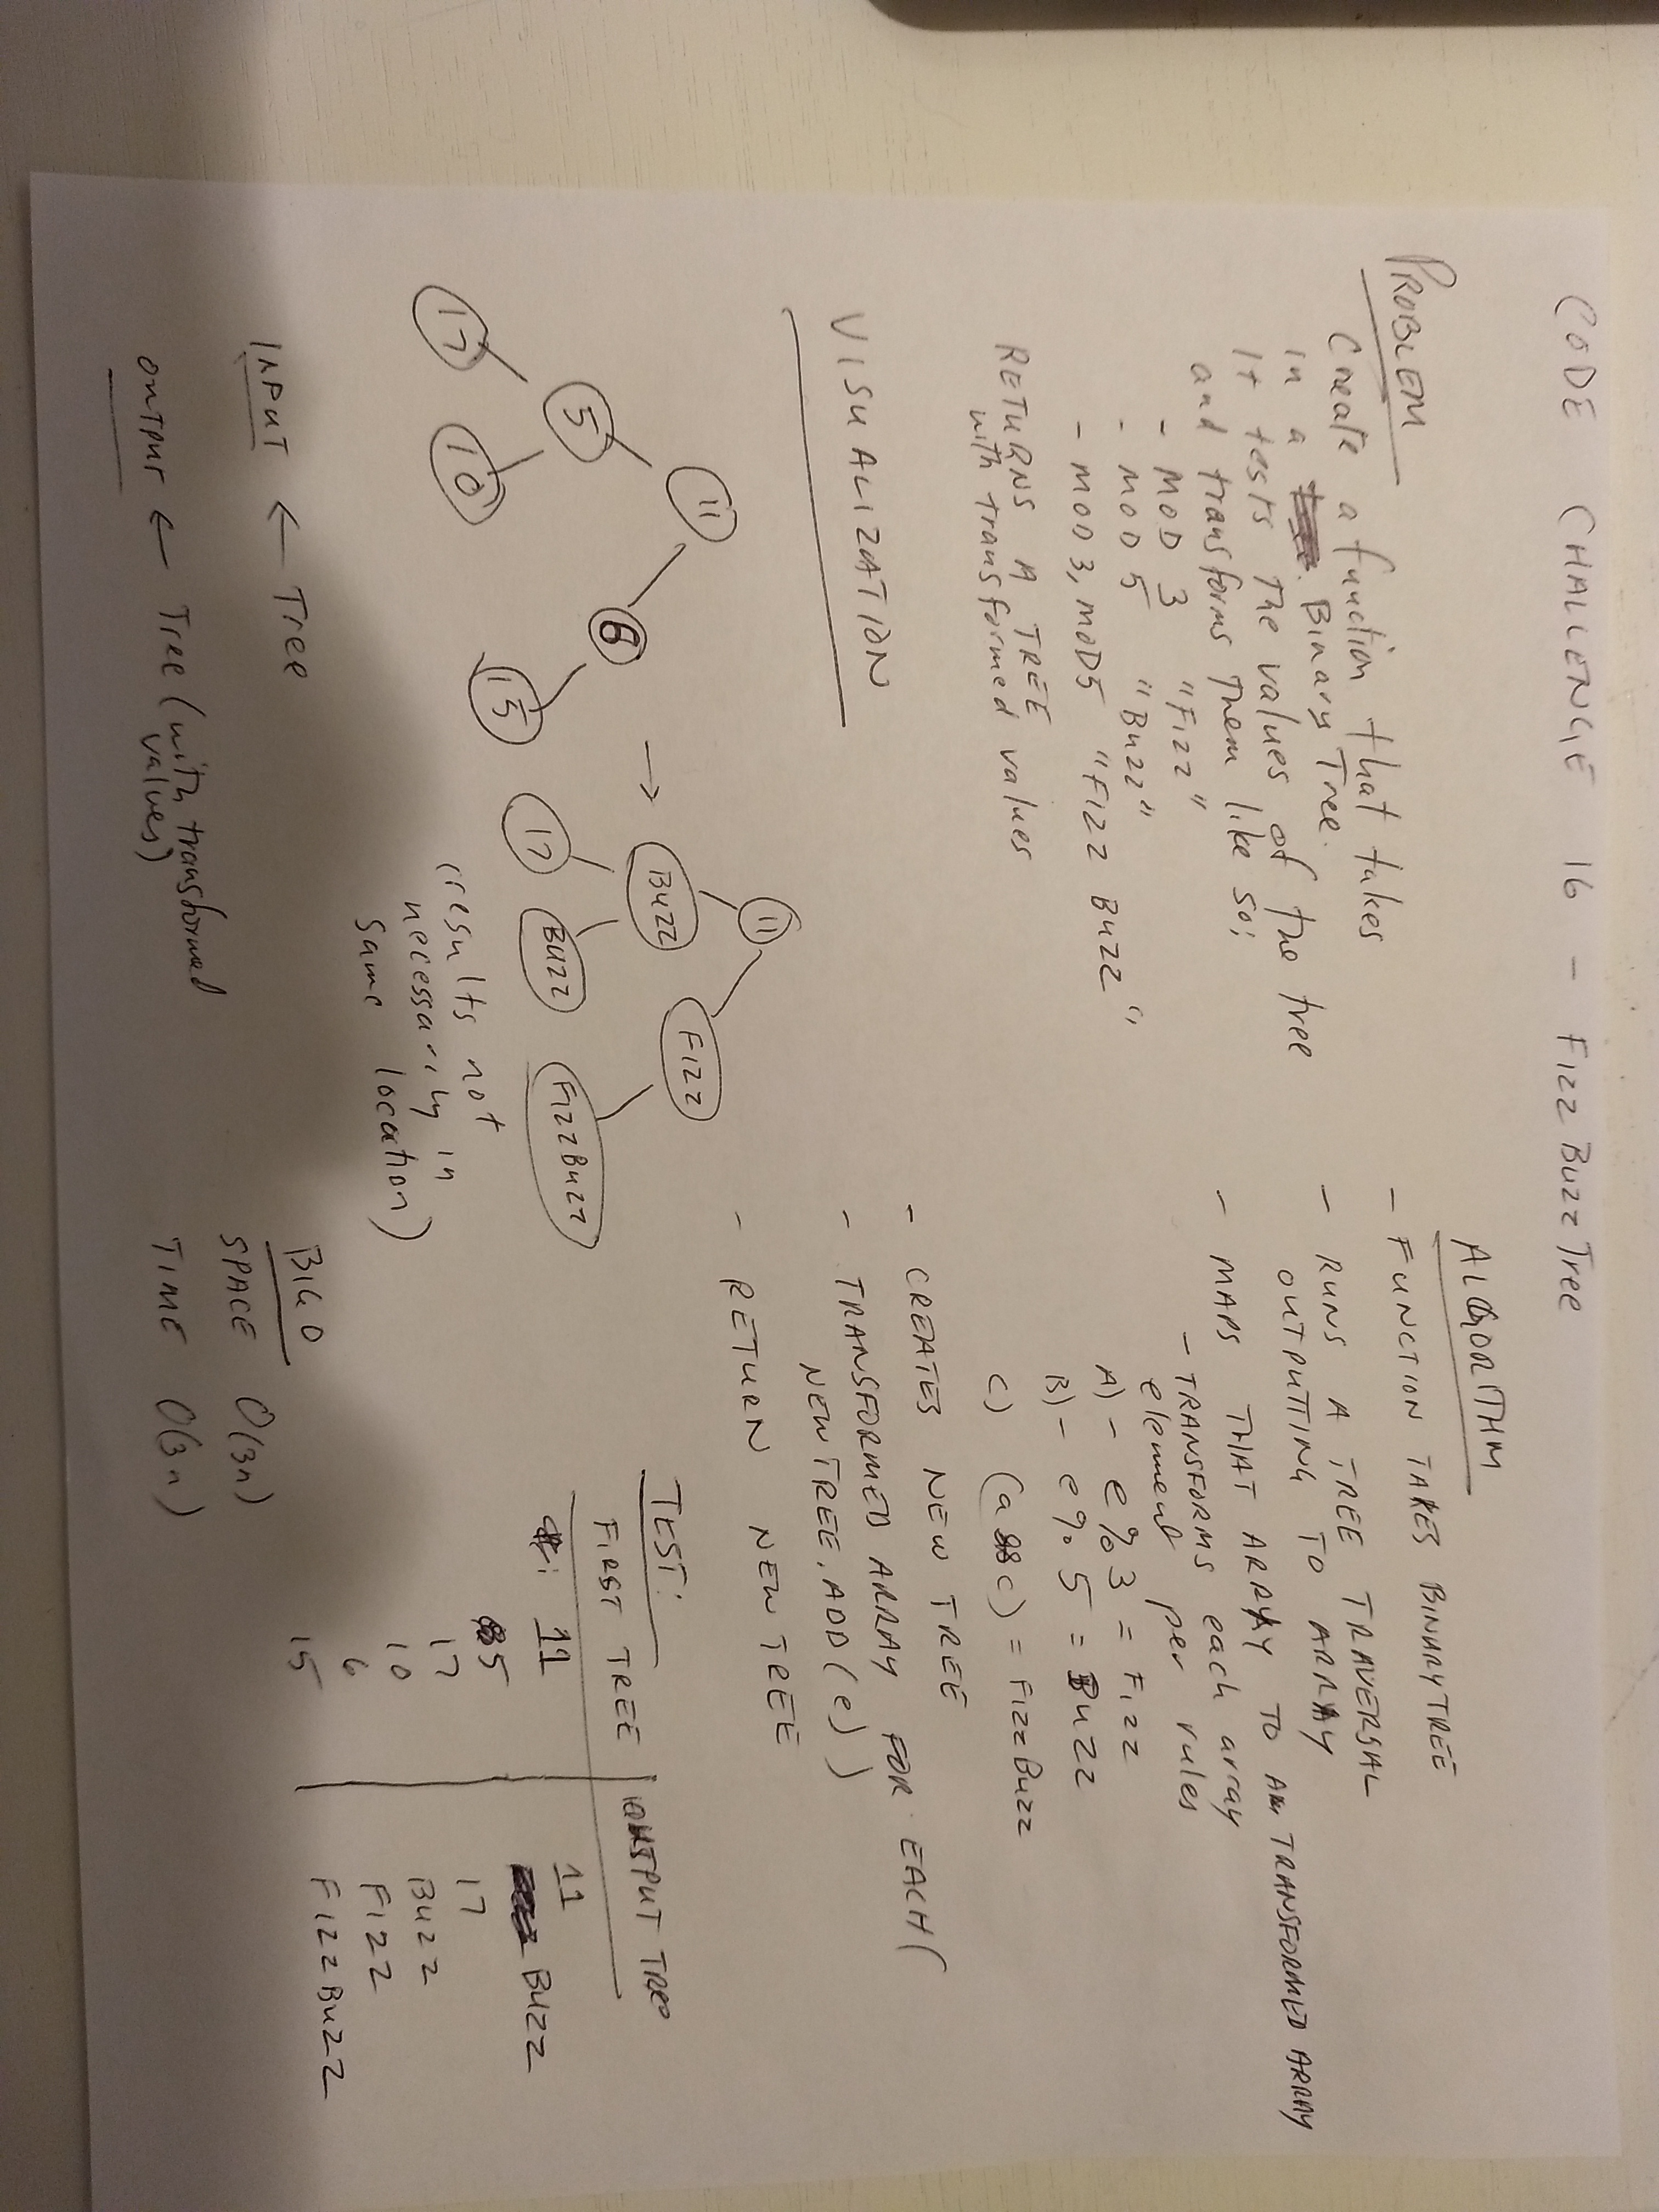 CODE CHALLENGE 16 - FIZZ BUZZ Tree
PROBLEM
Create a function that takes
in a Binary Tree.
It tests the values of the tree
and transforms them like so:
- MOD 3 "FIZZ"
- MOD 5 "BUZZ"
- MOD 3, MOD5 "FIZZ BUZZ"
RETURNS A TREE
with transformed values
VISUALIZATION
11
5
17
10
15
→
11
BUZZ
FIZZ
17
BUZZ
FIZZBUZZ
(results not
necessarily in
same location)
INPUT ← Tree
OUTPUT ← Tree (with transformed
values)
ALGORITHM
- FUNCTION TAKES BINARYTREE
- RUNS A TREE TRAVERSAL
OUTPUTTING TO ARRAY
- MAPS THAT ARRAY TO A TRANSFORMED ARRAY
- TRANSFORMS each array
element per rules
A) - e % 3 = FIZZ
B) - e % 5 = BUZZ
C) = FIZZBUZZ
- CREATES NEW TREE
- TRANSFORMED ARRAY FOR EACH (
NEWTREE.ADD(e))
- RETURN NEW TREE
BIG O
SPACE O(3n)
TIME O(3n)
TEST:
FIRST TREE OUTPUT TREE
11 11
5 BUZZ
17 17
10 BUZZ
6 FIZZ
15 FIZZBUZZ